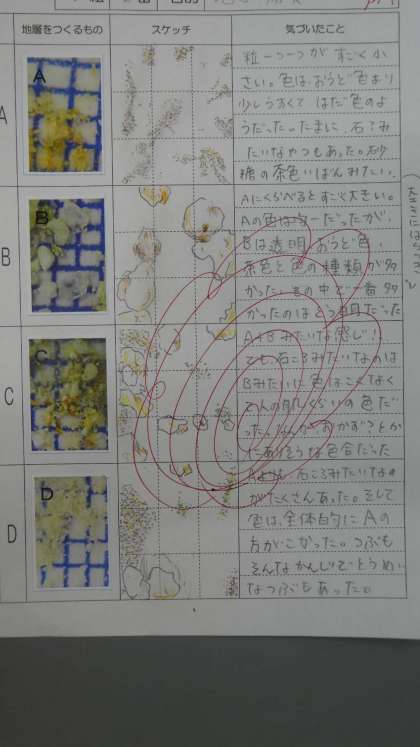 地層をつくるもの スケッチ 気づいたこと
A
A
粒一つ一つが すごく小
さい。色は、おうど色より
少しうすくて はだ色のよ
うだった。たまに、石?み
たいなやつもあった。砂
糖の茶色いばんみたい。
B
B
Aにくらべるとすごく大きい。
Aの色は均一だったが、
Bは透明、おうど色、
茶色と色の種類が多
かった。その中で一番多
かったのはとう明だった
C
C
A+Bみたいな感じ!
でも石ころみたいなのは
Bみたいに色はこくなく
て人の肌くらいの色だ
った。
な色合だった
D
D
石ころみたいなの
がたくさんあった。そして
色は、全体的にAの
方がこかった。つぶも
そんなかんじでとうめい
なつぶもあった。